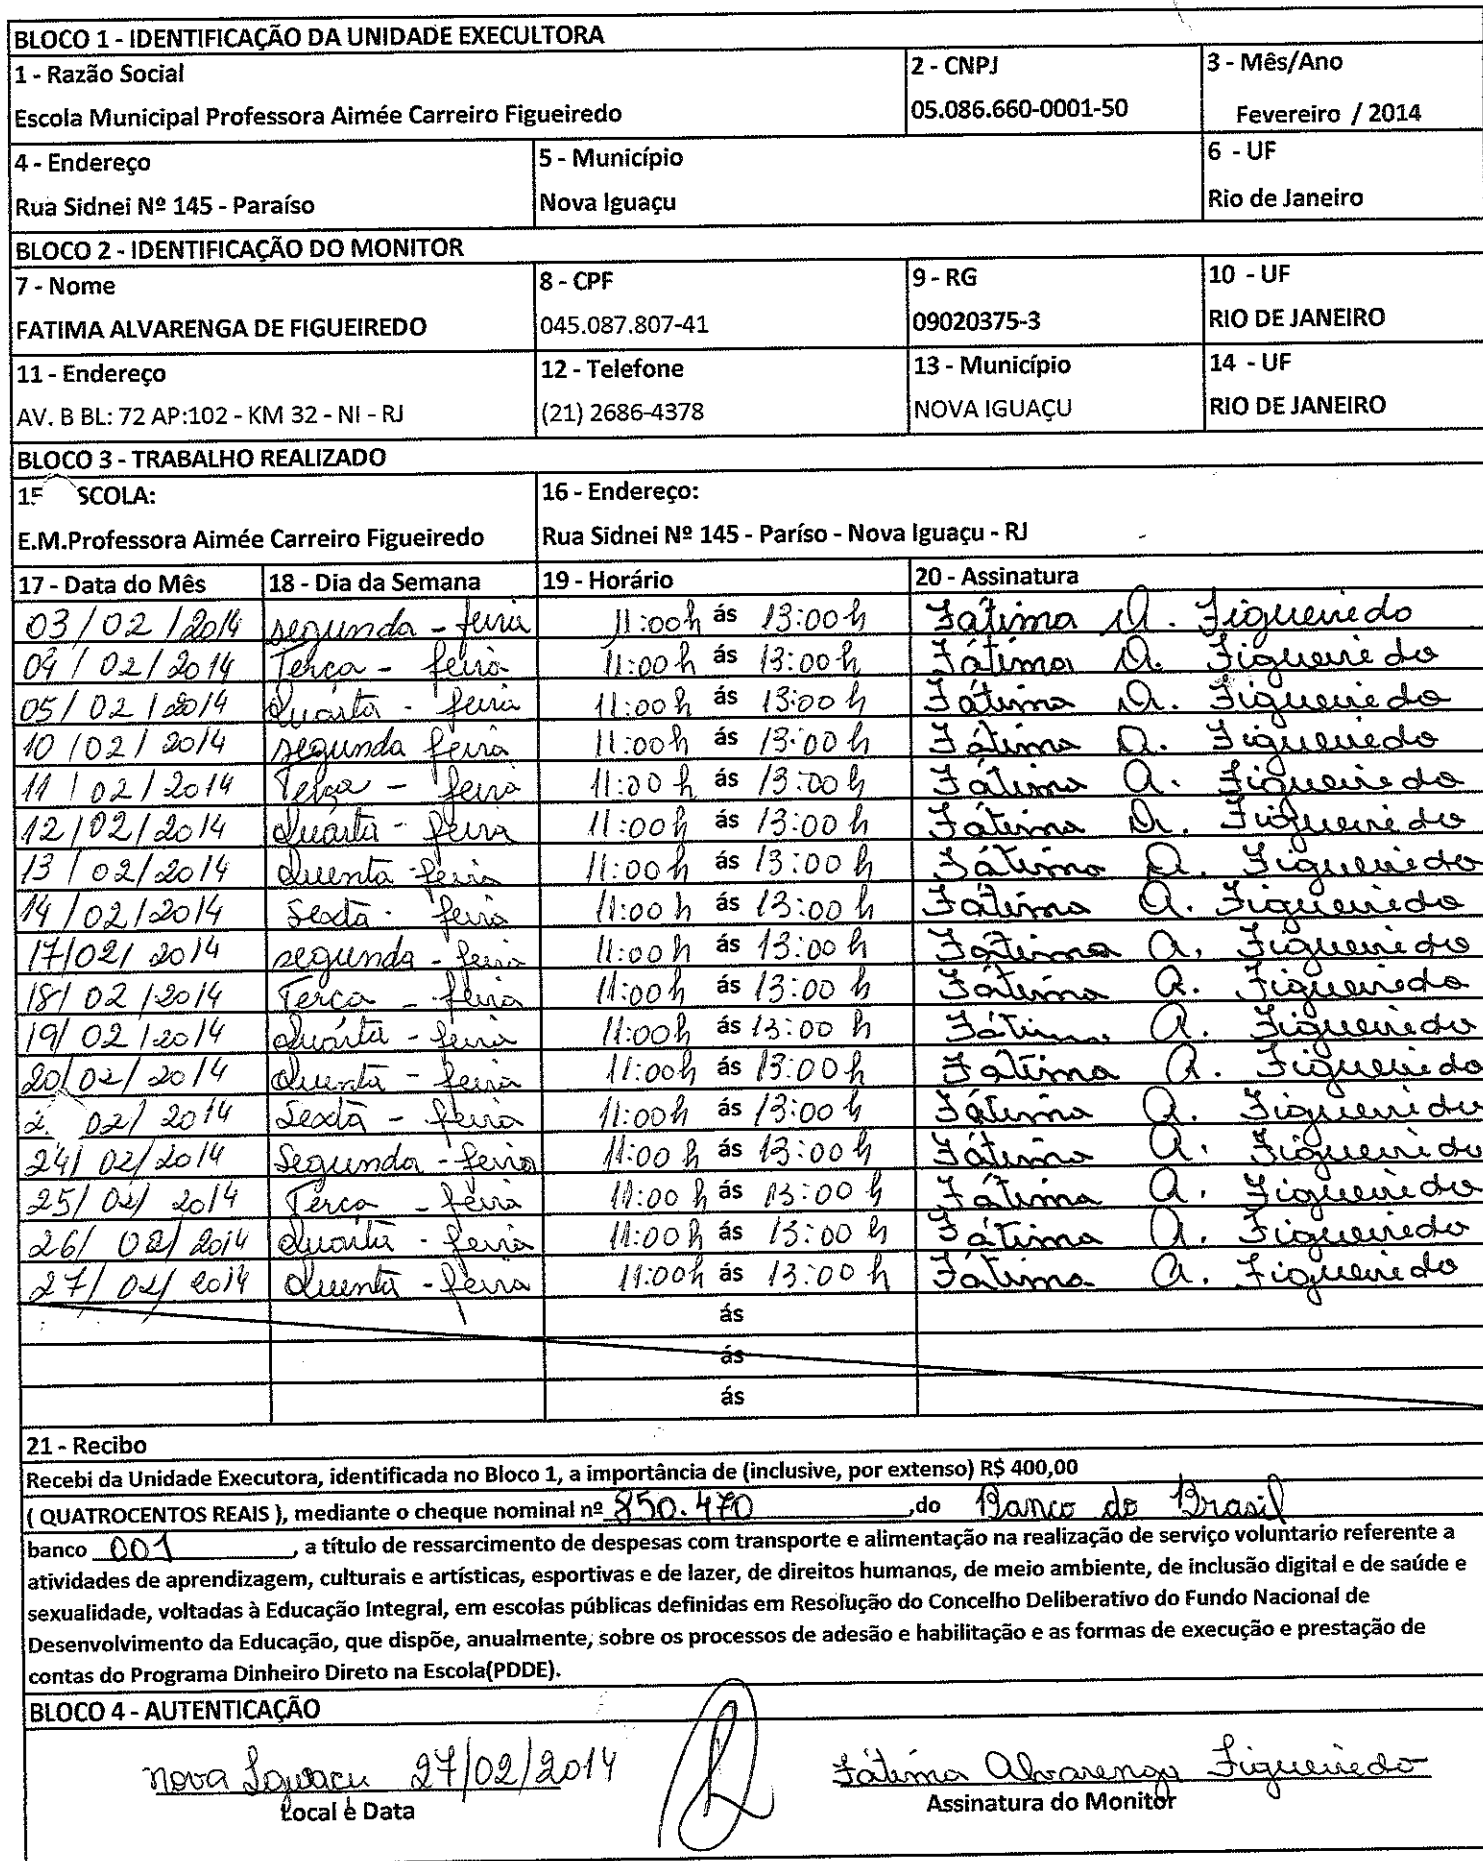 BLOCO 1 - IDENTIFICAÇÃO DA UNIDADE EXECULTORA
1 - Razão Social 2 - CNPJ 3 - Mês/Ano
Escola Municipal Professora Aimée Carreiro Figueiredo 05.086.660-0001-50 Fevereiro / 2014
4 - Endereço 5 - Município 6 - UF
Rua Sidnei Nº 145 - Paraíso Nova Iguaçu Rio de Janeiro
BLOCO 2 - IDENTIFICAÇÃO DO MONITOR
7 - Nome 8 - CPF 9 - RG 10 - UF
FATIMA ALVARENGA DE FIGUEIREDO 045.087.807-41 09020375-3 RIO DE JANEIRO
11 - Endereço 12 - Telefone 13 - Município 14 - UF
AV. B BL: 72 AP:102 - KM 32 - NI - RJ (21) 2686-4378 NOVA IGUAÇU RIO DE JANEIRO
BLOCO 3 - TRABALHO REALIZADO
15 SCOLA: 16 - Endereço:
E.M.Professora Aimée Carreiro Figueiredo Rua Sidnei Nº 145 - Paríso - Nova Iguaçu - RJ
17 - Data do Mês 18 - Dia da Semana 19 - Horário 20 - Assinatura
03/02/2014 segunda-feira 11:00h ás 13:00h Fátima A. Figueiredo
04/02/2014 Terça-feira 11:00h ás 13:00h Fátima A. Figueiredo
05/02/2014 Quarta-feira 11:00h ás 13:00h Fátima A. Figueiredo
10/02/2014 segunda feira 11:00h ás 13:00h Fátima A. Figueiredo
11/02/2014 Terça-feira 11:00h ás 13:00h Fátima A. Figueiredo
12/02/2014 Quarta-feira 11:00h ás 13:00h Fátima A. Figueiredo
13/02/2014 Quinta-feira 11:00h ás 13:00h Fátima A. Figueiredo
14/02/2014 Sexta-feira 11:00h ás 13:00h Fátima A. Figueiredo
17/02/2014 segunda-feira 11:00h ás 13:00h Fátima A. Figueiredo
18/02/2014 Terça-feira 11:00h ás 13:00h Fátima A. Figueiredo
19/02/2014 Quarta-feira 11:00h ás 13:00h Fátima A. Figueiredo
20/02/2014 Quinta-feira 11:00h ás 13:00h Fátima A. Figueiredo
2 02/2014 Sexta-feira 11:00h ás 13:00h Fátima A. Figueiredo
24/02/2014 Segunda-feira 11:00h ás 13:00h Fátima A. Figueiredo
25/02/2014 Terça-feira 11:00h ás 13:00h Fátima A. Figueiredo
26/02/2014 Quarta-feira 11:00h ás 13:00h Fátima A. Figueiredo
27/02/2014 Quinta-feira 11:00h ás 13:00h Fátima A. Figueiredo
ás
ás
ás
21 - Recibo
Recebi da Unidade Executora, identificada no Bloco 1, a importância de (inclusive, por extenso) R$ 400,00
( QUATROCENTOS REAIS ), mediante o cheque nominal nº 850.470 ,do Banco do Brasil
banco 001 , a título de ressarcimento de despesas com transporte e alimentação na realização de serviço voluntario referente a
atividades de aprendizagem, culturais e artísticas, esportivas e de lazer, de direitos humanos, de meio ambiente, de inclusão digital e de saúde e
sexualidade, voltadas à Educação Integral, em escolas públicas definidas em Resolução do Concelho Deliberativo do Fundo Nacional de
Desenvolvimento da Educação, que dispõe, anualmente, sobre os processos de adesão e habilitação e as formas de execução e prestação de
contas do Programa Dinheiro Direto na Escola(PDDE).
BLOCO 4 - AUTENTICAÇÃO
Nova Iguaçu 27/02/2014 Fátima Alvarenga Figueiredo
Local e Data Assinatura do Monitor